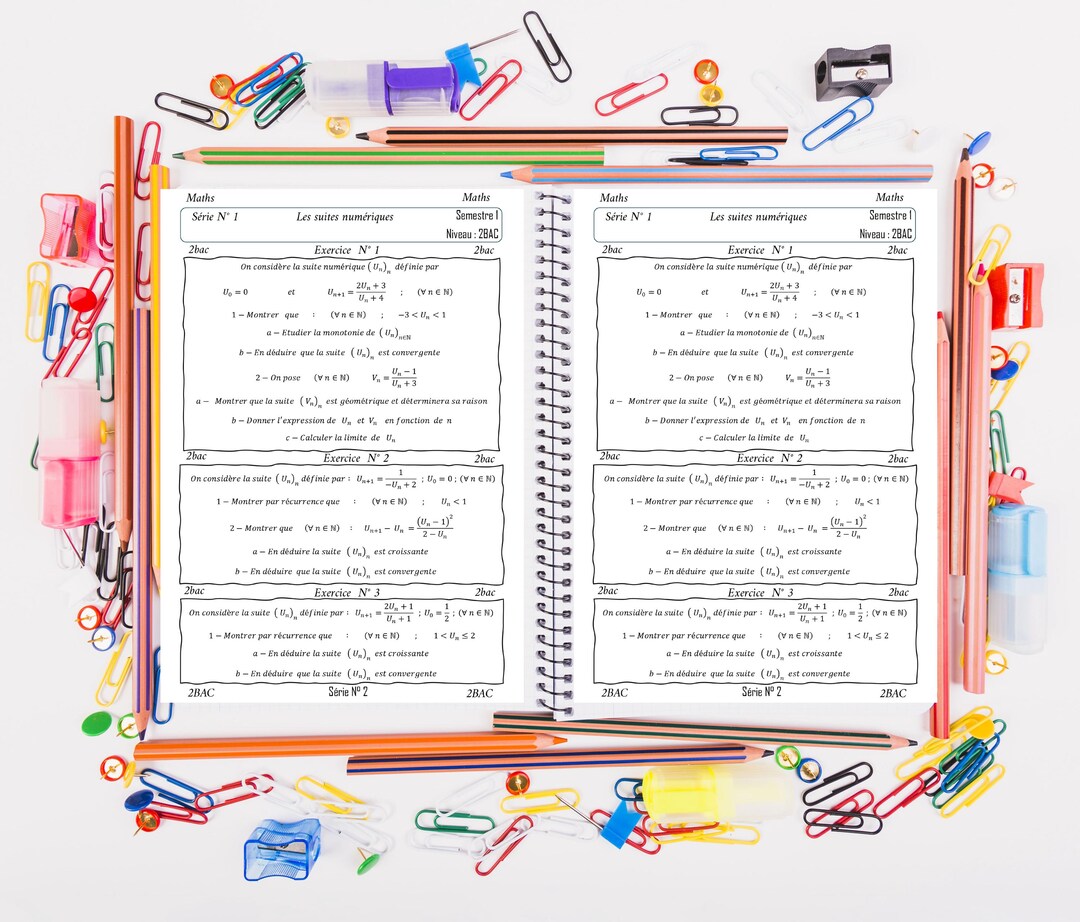 Maths Maths
Série N° 1 Les suites numériques Semestre 1
Niveau : 2BAC
2bac Exercice N° 1 2bac
On considère la suite numérique (Uₙ)ₙ définie par
U₀ = 0 et Uₙ₊₁ = (2Uₙ + 3)/(Uₙ + 4) ; (∀ n ∈ ℕ)
1 − Montrer que : (∀ n ∈ ℕ) ; −3 < Uₙ < 1
a − Etudier la monotonie de (Uₙ)ₙ∈ℕ
b − En déduire que la suite (Uₙ)ₙ est convergente
2 − On pose (∀ n ∈ ℕ) Vₙ = (Uₙ − 1)/(Uₙ + 3)
a − Montrer que la suite (Vₙ)ₙ est géométrique et déterminera sa raison
b − Donner l'expression de Uₙ et Vₙ en fonction de n
c − Calculer la limite de Uₙ
2bac Exercice N° 2 2bac
On considère la suite (Uₙ)ₙ définie par : Uₙ₊₁ = 1/(−Uₙ + 2) ; U₀ = 0 ; (∀ n ∈ ℕ)
1 − Montrer par récurrence que : (∀ n ∈ ℕ) ; Uₙ < 1
2 − Montrer que (∀ n ∈ ℕ) : Uₙ₊₁ − Uₙ = (Uₙ − 1)²/(2 − Uₙ)
a − En déduire la suite (Uₙ)ₙ est croissante
b − En déduire que la suite (Uₙ)ₙ est convergente
2bac Exercice N° 3 2bac
On considère la suite (Uₙ)ₙ définie par : Uₙ₊₁ = (2Uₙ + 1)/(Uₙ + 1) ; U₀ = 1/2 ; (∀ n ∈ ℕ)
1 − Montrer par récurrence que : (∀ n ∈ ℕ) ; 1 < Uₙ ≤ 2
a − En déduire la suite (Uₙ)ₙ est croissante
b − En déduire que la suite (Uₙ)ₙ est convergente
2BAC Série Nº 2 2BAC
Maths Maths
Série N° 1 Les suites numériques Semestre 1
Niveau : 2BAC
2bac Exercice N° 1 2bac
On considère la suite numérique (Uₙ)ₙ définie par
U₀ = 0 et Uₙ₊₁ = (2Uₙ + 3)/(Uₙ + 4) ; (∀ n ∈ ℕ)
1 − Montrer que : (∀ n ∈ ℕ) ; −3 < Uₙ < 1
a − Etudier la monotonie de (Uₙ)ₙ∈ℕ
b − En déduire que la suite (Uₙ)ₙ est convergente
2 − On pose (∀ n ∈ ℕ) Vₙ = (Uₙ − 1)/(Uₙ + 3)
a − Montrer que la suite (Vₙ)ₙ est géométrique et déterminera sa raison
b − Donner l'expression de Uₙ et Vₙ en fonction de n
c − Calculer la limite de Uₙ
2bac Exercice N° 2 2bac
On considère la suite (Uₙ)ₙ définie par : Uₙ₊₁ = 1/(−Uₙ + 2) ; U₀ = 0 ; (∀ n ∈ ℕ)
1 − Montrer par récurrence que : (∀ n ∈ ℕ) ; Uₙ < 1
2 − Montrer que (∀ n ∈ ℕ) : Uₙ₊₁ − Uₙ = (Uₙ − 1)²/(2 − Uₙ)
a − En déduire la suite (Uₙ)ₙ est croissante
b − En déduire que la suite (Uₙ)ₙ est convergente
2bac Exercice N° 3 2bac
On considère la suite (Uₙ)ₙ définie par : Uₙ₊₁ = (2Uₙ + 1)/(Uₙ + 1) ; U₀ = 1/2 ; (∀ n ∈ ℕ)
1 − Montrer par récurrence que : (∀ n ∈ ℕ) ; 1 < Uₙ ≤ 2
a − En déduire la suite (Uₙ)ₙ est croissante
b − En déduire que la suite (Uₙ)ₙ est convergente
2BAC Série Nº 2 2BAC